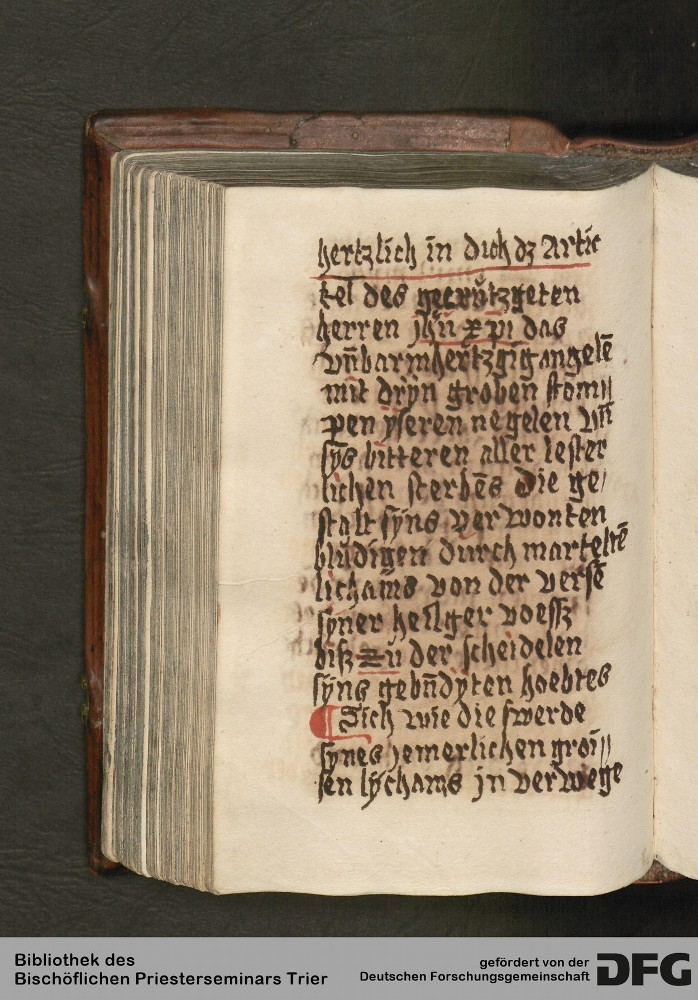 hertzlich in dich dz Artic
kel des gecrůtzgeten
herren jhū xpi das
vn̄barmhertzgig angelē
mit drÿn groben stom//
pen ÿseren negelen vn̄
sÿs bitteren aller lester
lichen sterbēs die ge/
stalt sÿns verwonten
blůdigen durch marteltē
lichams von der versē
sÿner heilger voessz
bisz zů der scheidelen
sÿns gebūdÿten hoebtes
¶ Sich wie die swerde
sÿnes jemerlichen groi//
sen lÿchams jn verwege
Bibliothek des
Bischöflichen Priesterseminars Trier
gefördert von der
Deutschen Forschungsgemeinschaft DFG